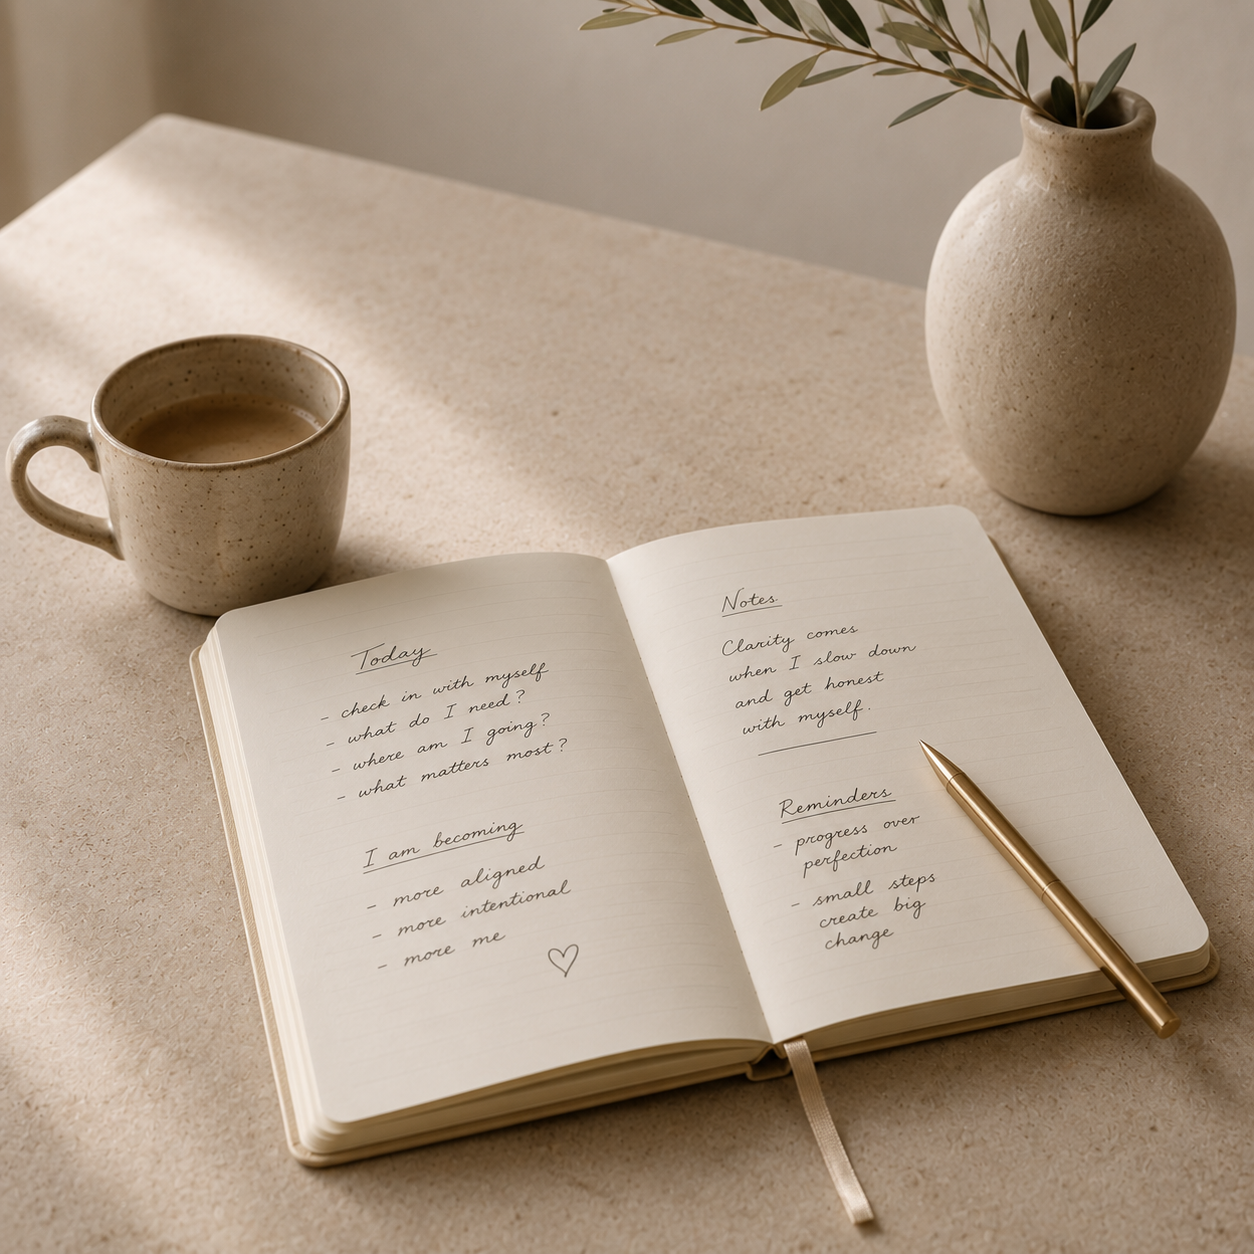 Today
- check in with myself
- what do I need?
- where am I going?
- what matters most?
I am becoming
- more aligned
- more intentional
- more me
Notes
Clarity comes
when I slow down
and get honest
with myself.
Reminders
- progress over
perfection
- small steps
create big
change